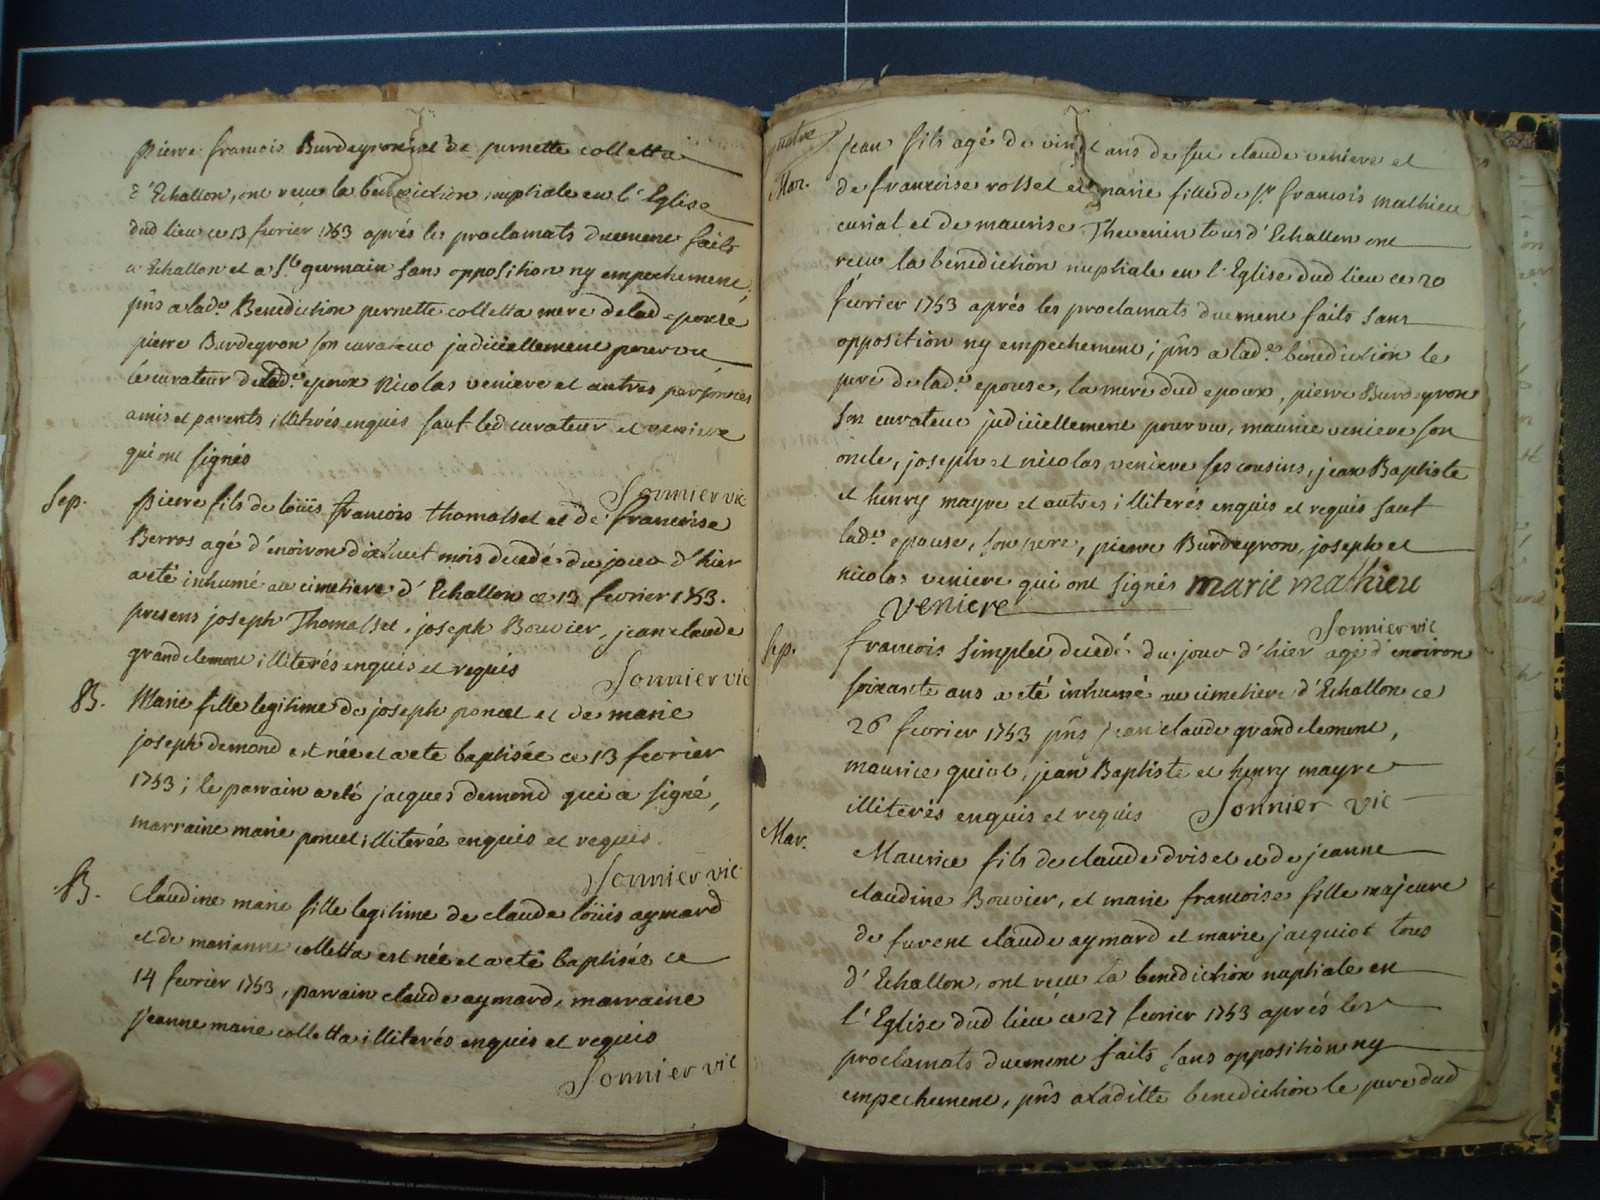 pierre francois Burdeyron et de pernette colletta
d'Echallon, ont receu la benediction nuptiale en l'Eglise
dud lieu ce 13 fevrier 1753 aprés les proclamats duement faits
a Echallon et a St germain sans opposition ny empechement,
pñs a lad.e Benediction pernette colletta mere de lad epouse
pierre Burdeyron son curateur judiciellement pourvu
le curateur de lad.e epoux Nicolas veniere et autres personnes
amis et parents illiterés enquis sauf led curateur et veniere
qui ont signés
Sonnier vic
Sep. pierre fils de loüis francois thomasset et de francoise
Berros agé d'environ dixhuit mois decedé du jour d'hier
a eté inhumé au cimetiere d'Echallon ce 13 fevrier 1753.
presens joseph Thomasset, joseph Bouvier, jean claude
grandclement illiterés enquis et requis
Sonnier vic
B. Marie fille legitime de joseph poncet et de marie
joseph demond est née et a ete baptisée ce 13 fevrier
1753; le parrain a eté jacques demond qui a signé,
marraine marie poncet illiterée enquis et requis
Sonnier vic
B. Claudine marie fille legitime de claude loüis aymard
et de marianne colletta est née et a eté baptisée ce
14 fevrier 1753, parrain claude aymard, marraine
jeanne marie colletta illiterés enquis et requis
Sonnier vic
Mar. jean fils agé de vingt ans de feu claude veniere et
de francoise rosset et marie fille de Sr francois mathieu
curial et de maurise Thevenin tous d'Echallon ont
receu la benediction nuptiale en l'Eglise dud lieu ce 20
fevrier 1753 aprés les proclamats duement faits sans
opposition ny empechement; pñs a lad.e benediction le
pere de lad.e epouse, la mere dud epoux, pierre Burdeyron
son curateur judiciellement pourvu, maurice veniere son
oncle, joseph et nicolas veniere ses cousins, jean Baptiste
et henry mayre et autres illiterés enquis et requis sauf
lad.e epouse, son pere, pierre Burdeyron, joseph et
nicolas veniere qui ont signés marie mathieu
veniere
Sonnier vic
Sep. francois Simplet decedé du jour d'hier agé d'environ
soixante ans a eté inhumé au cimetiere d'Echallon ce
26 fevrier 1753 pñs jean claude grandclement,
maurice quiot, jean Baptiste et henry mayre
illiterés enquis et requis Sonnier vic
Mar. Maurice fils de claude et de jeanne
claudine Bouvier, et marie francoise fille majeure
de furent claude aymard et marie jacquiot tous
d'Echallon, ont receu la benediction nuptiale en
l'Eglise dud lieu ce 27 fevrier 1753 aprés les
proclamats duement faits sans opposition ny
empechement, pñs a laditte benediction le pere dud